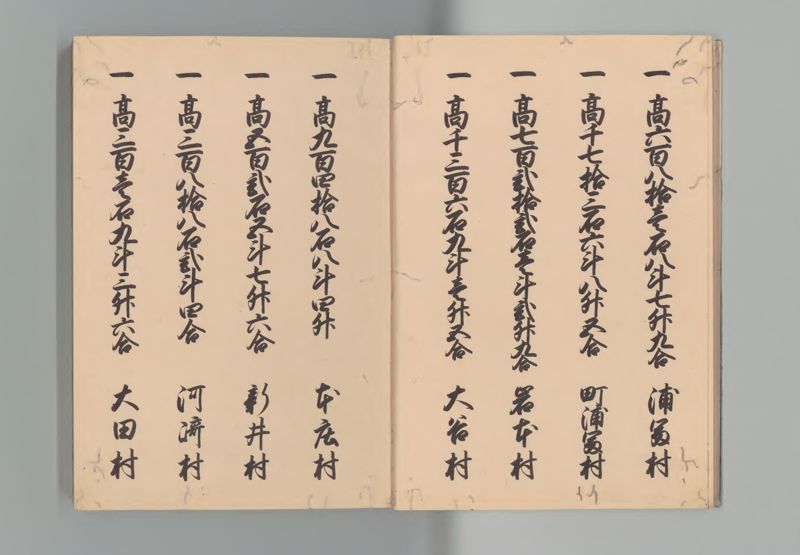 一 高六百八拾壱石八斗七升九合 浦富村
一 高千七拾三石六斗八升五合 町浦富村
一 高七百弐拾弐石壱斗弐升九合 岩本村
一 高千三百六石九斗壱升五合 大谷村
一 高九百四拾八石八斗四升 本庄村
一 高五百弐石五斗七升六合 新井村
一 高三百八拾八石弐斗四合 河崎村
一 高三百壱石九斗三升六合 大田村